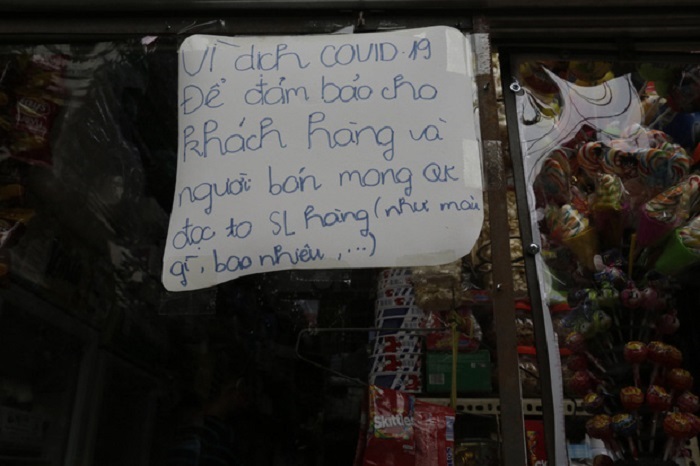 Vì dịch COVID-19
Để đảm bảo cho
khách hàng và
người bán mong QK
đọc to SL hàng (như mua
gì, bao nhiêu, ...)
Skittles